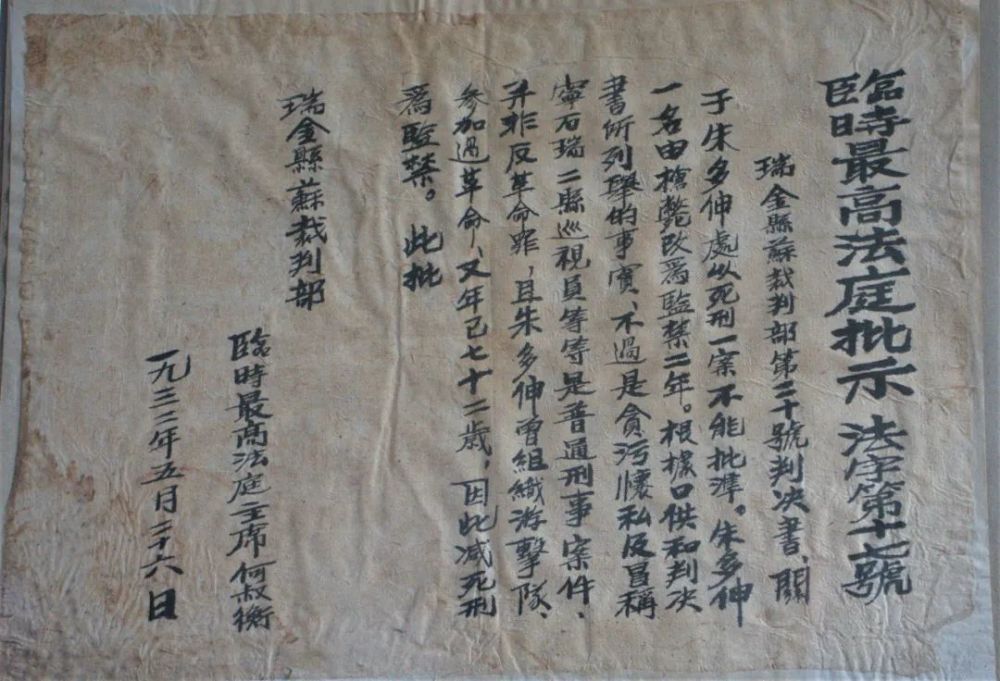 臨時最高法庭批示 法字第十七號
瑞金縣蘇裁判部第二十號判决書、關
于朱多伸處以死刑一案不能批準。朱多伸
一名由槍斃改爲監禁二年。根據口供和判决
書所列舉的事實、不過是貪污懷私及冒稱
寧石瑞二縣巡視員等等是普通刑事案件、
并非反革命罪，且朱多伸曾組織游擊隊、
参加過革命、又年已七十二歲，因此减死刑
爲監禁。 此批
瑞金縣蘇裁判部
臨時最高法庭主席 何叔衡
一九三二年五月二十六日